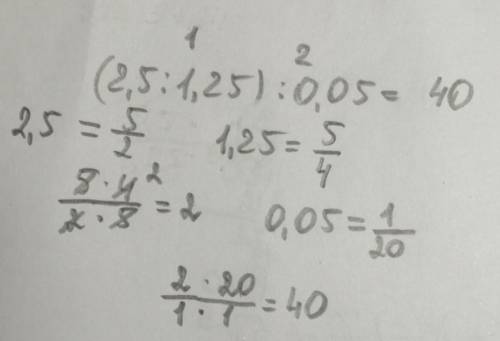 1 2
(2,5:1,25):0,05= 40
2,5 = 5/2 1,25 = 5/4
5·4²/2·5 = 2 0,05 = 1/20
2·20/1·1 = 40